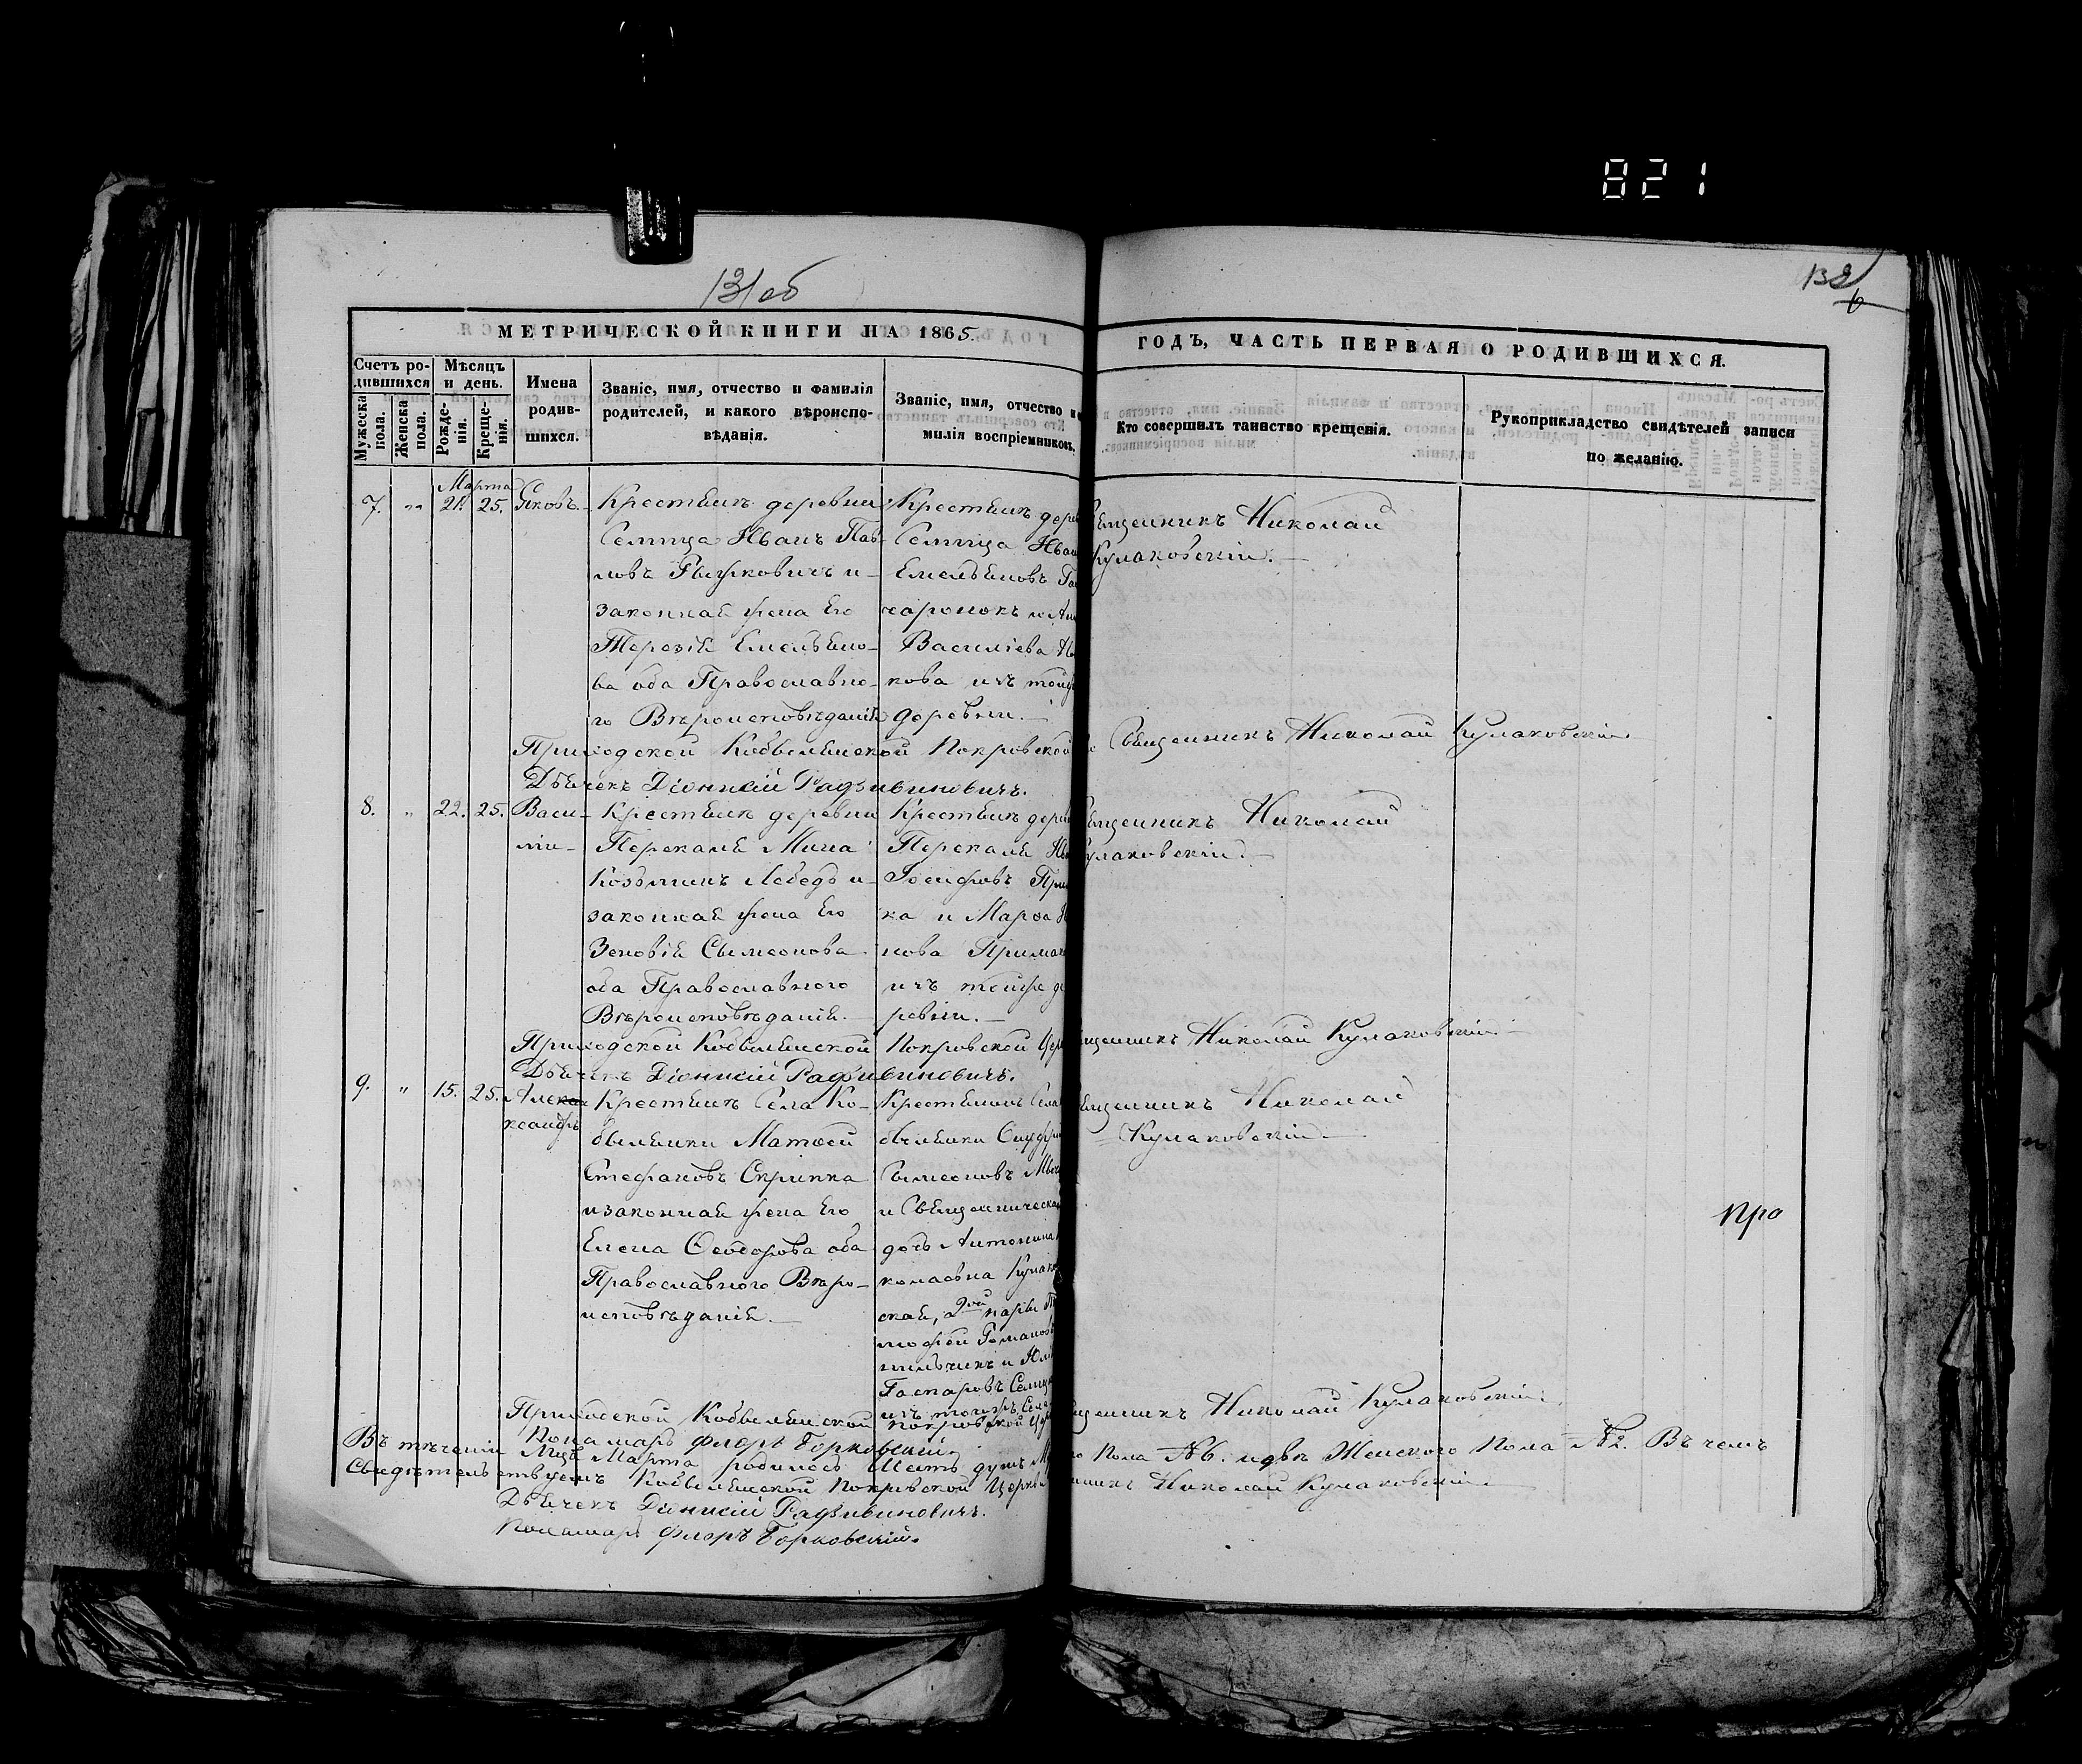 821
131 об
132
МЕТРИЧЕСКОЙ КНИГИ НА 1865.
ГОДЪ, ЧАСТЬ ПЕРВАЯ О РОДИВШИХСЯ.
Счетъ ро-
дившихся
Мужеска
пола.
Женска
пола.
Мѣсяцъ
и день.
Рожде-
нія.
Креще-
нія.
Имена
родив-
шихся.
Званіе, имя, отчество и фамилія
родителей, и какого вѣроиспо-
вѣданія.
Званіе, имя, отчество и
милія воспріемниковъ.
Кто совершилъ таинство крещенія.
Рукоприкладство свидѣтелей записи
по желанію.
Марта
7. " 21. 25. Яковъ.
Крестьянъ деревни
Селища Иванъ Пав-
ловъ Рыжковичъ и
законная жена Его
Терезія Емельяно-
ва оба Православна-
го Вѣроисповѣданія
Крестьянъ дерев
Селища Иван
Емельяновъ
Василіева
кова изъ тойж
деревни.
Священникъ Николай
Кулаковскій.
Приходской Кобылянской Покровской
Священникъ Николай Кулаковскій
Дьячекъ Діонисій Радзивиновичъ.
8. " 22. 25. Васи-
лій
Крестьянъ деревни
Перекаля Мина
Козьминъ Лебедь и
законная жена Его
Зеновія Сымеонова
оба Православного
Вѣроисповѣданія.
Крестьянъ дерев
Перекаля
Іосифовъ
ка и Марѳа
нова Примак
изъ тойже де
ревни.
Священникъ Николай
Кулаковскій.
Приходской Кобылянской Покровской Цер
Священникъ Николай Кулаковскій
Дьячекъ Діонисій Радзивиновичъ.
9. " 15. 25. Алек
ксандръ
Крестьянъ Села Ко-
былянки Матѳей
Стефановъ Скрипка
и законная жена Его
Елена Ѳеодорова оба
Православного Вѣро-
исповѣданія.
Крестьянинъ Села
былянки Онуфрі
Сымеоновъ
и Священническая
дочь Антонина
колаевна Кулаков
ская, а 2ой пары
моѳей Романовъ
и Юлі
Гаспаровъ
изъ тогожъ Села
Священникъ Николай
Кулаковскій
про
Приходской Кобылянской Покровской Цер
Священникъ Николай Кулаковскій
Понамарь Флоръ Борковскій
Въ теченіи Мцѣ Марта родилось Шесть душъ М
го Пола №6. и двѣ Женского Пола №2. Въ чемъ
Свидѣтельствуемъ Кобылянской Покровской Церкви
Священникъ Николай Кулаковскій
Дьячекъ Діонисій Радзивиновичъ.
Понамарь Флоръ Борковскій.